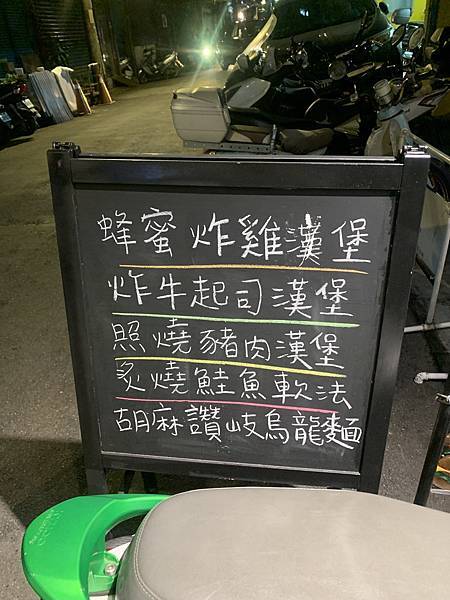 蜂蜜炸雞漢堡
炸牛起司漢堡
照燒豬肉漢堡
炙燒鮭魚軟法
胡麻讚岐烏龍麵